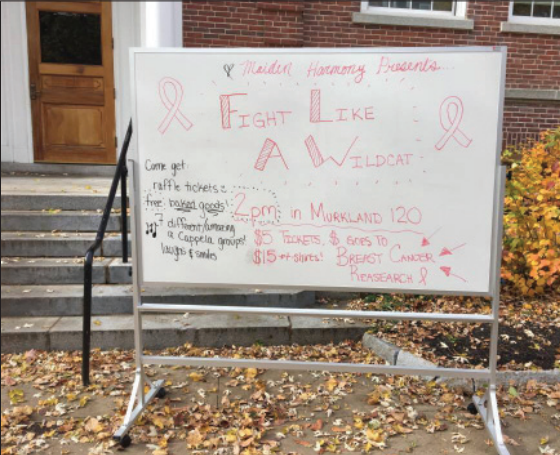 Maiden Harmony Presents...
FIGHT LIKE
A WILDCAT
Come get
raffle tickets &
free baked goods!
7 different/amazing
a Cappella groups!
laughs & smiles
2pm in MURKLAND 120
$5 TICKETS, $ GOES TO
$15 t-shirts! BREAST CANCER
REASEARCH